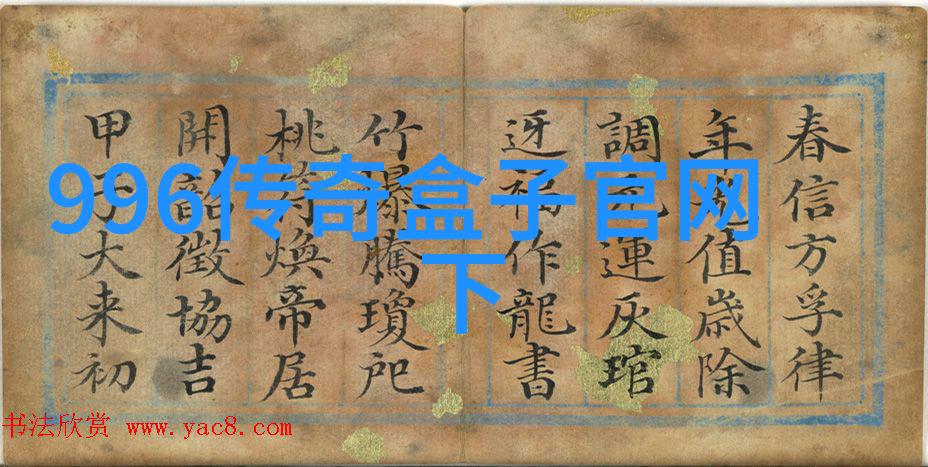 996传奇盒子官网
下
春信方孚律
年光值歲除
調元運灰琯
迓福作龍書
竹爆騰瓊戺
桃符煥帝居
開韶徵協吉
甲子大来初
书法欣赏 www.yac8.com